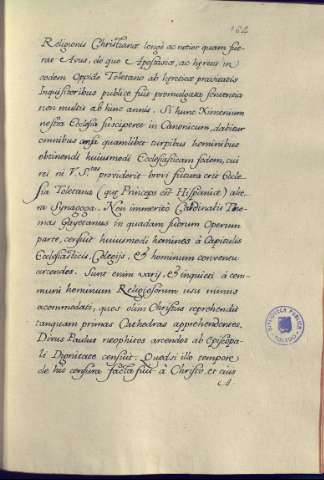 162
Religionis Christianæ longè acrior quam fue-
rat Avus, de quo Apostasiæ, ac hæresis in
eodem Oppido Toletano ab hereticæ pravitatis
Inquisitoribus publicè fuit promulgata sententia
non multis ab hinc annis. Si hunc Ximenum
nostra Ecclesia susciperet in Canonicum, dabitur
omnibus quamlibet turpibus hominibus
obtinendi huiusmodi Ecclesiasticam sedem, cui
rei ni V. S.tas providerit brevi futura erit Eccle-
sia Toletana (que Princeps est Hispaniæ) alte-
ra Synagoga. Non immeritò Cardinalis Tho-
mas Gayetanus in quadam suorum Operum
parte, censuit huiusmodi homines à Capitulis
Ecclesiasticis, Collegijs, & hominum conventu
arcendos. Sunt enim varij, & inquieti à com-
muni hominum Religiosorum usu minus
acommodati, quos olim Christus reprehendit
tanquam primas Cathedras apprehendentes.
Divus Paulus neophitos arcendos ab Episcopa-
li Dignitate censuit. Quod si illo tempore
de his censura facta fuit à Christo, et eius
A.
BIBLIOTECA PUBLICA
TOLEDO